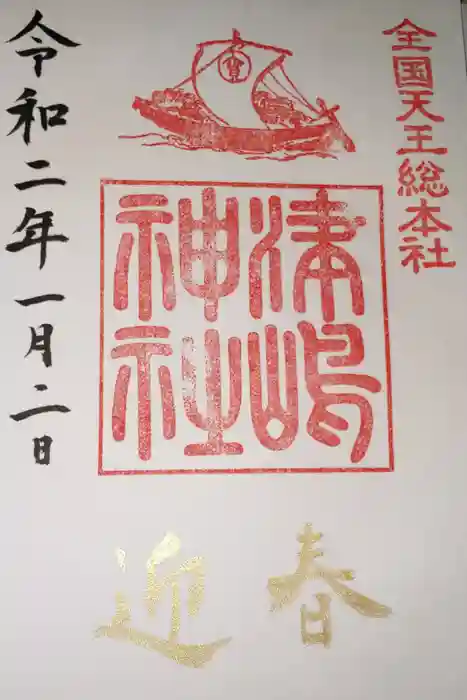 全国天王総本社
寳
津嶋
神社
迎春
令和二年一月二日